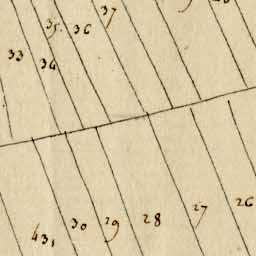 37
35. 36
33 34
26
27
28
29
30
431